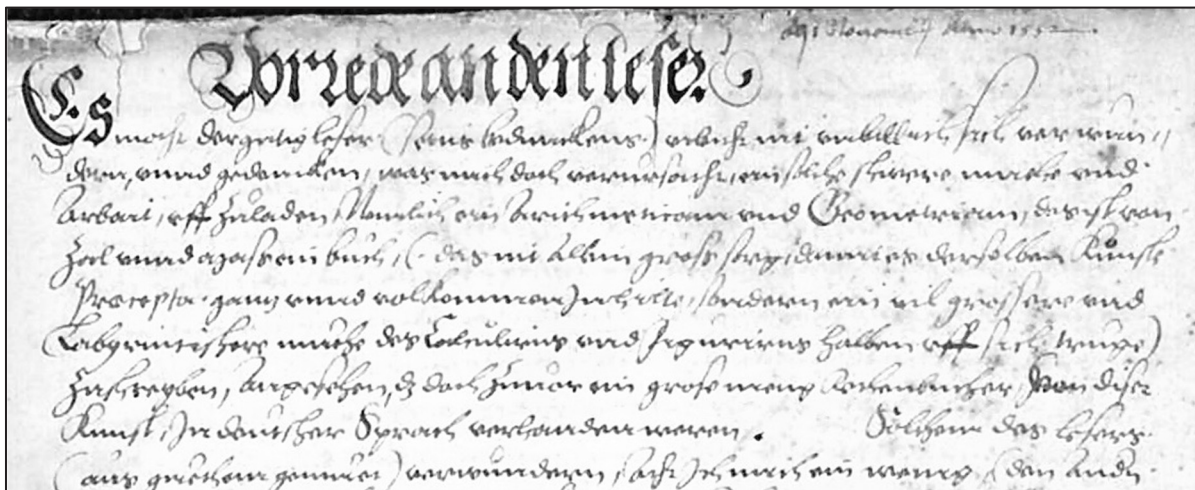 Nouemb: Anno 1552
Vorrede an den leser.
Es möcht der gutig leser (seins bedunckens) villicht nit vnbillich sich verwun„
dern, vnnd gedencken, was mich doch verursacht, ein soliche schwere müehe vnd
Arbait, vff zuladen, Namlich ein Arithmeticam vnd Geometriam, das ist von
Zal vnnd mass ein buch, (das nit allein gross sorg, damit es derselben Künste
Præcepta gantz vnnd volkommen Inhielte, sondern ein vil grossere vnd
Labyrintischere müehe des Calculirns vnd figurirns halben vff sich truge)
Zuschreyben, Angesehen, dz doch zuuor ein grosse meng Rechenbücher, von diser
Kunst, In deutscher Sprach verhanden weren. Solchem des lesers
(aus guethem gemüet) verwundern, ich ein wenig, den